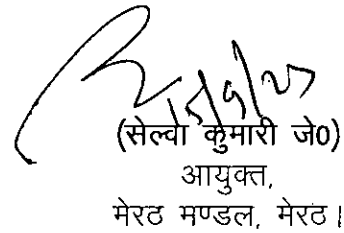 (सेल्वा कुमारी जे0)
आयुक्त,
मेरठ मण्डल, मेरठ।